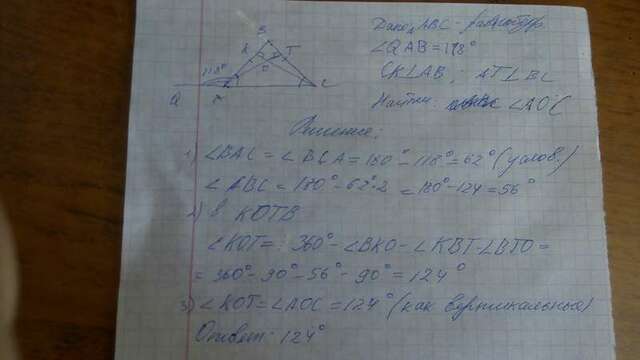 B
K T
O
118°
Q A C
Дано: ABC - равнобедр
∠QAB = 118°
CK⊥AB, AT⊥BC
Найти: ∠AOC
Решение:
1) ∠BAC = ∠BCA = 180° - 118° = 62° (услов.)
∠ABC = 180° - 62°·2 = 180° - 124 = 56°
2) В KOTB
∠KOT = 360° - ∠BKO - ∠KBT - ∠BTO =
= 360° - 90° - 56° - 90° = 124°
3) ∠KOT = ∠AOC = 124° (как вертикальные)
Ответ: 124°